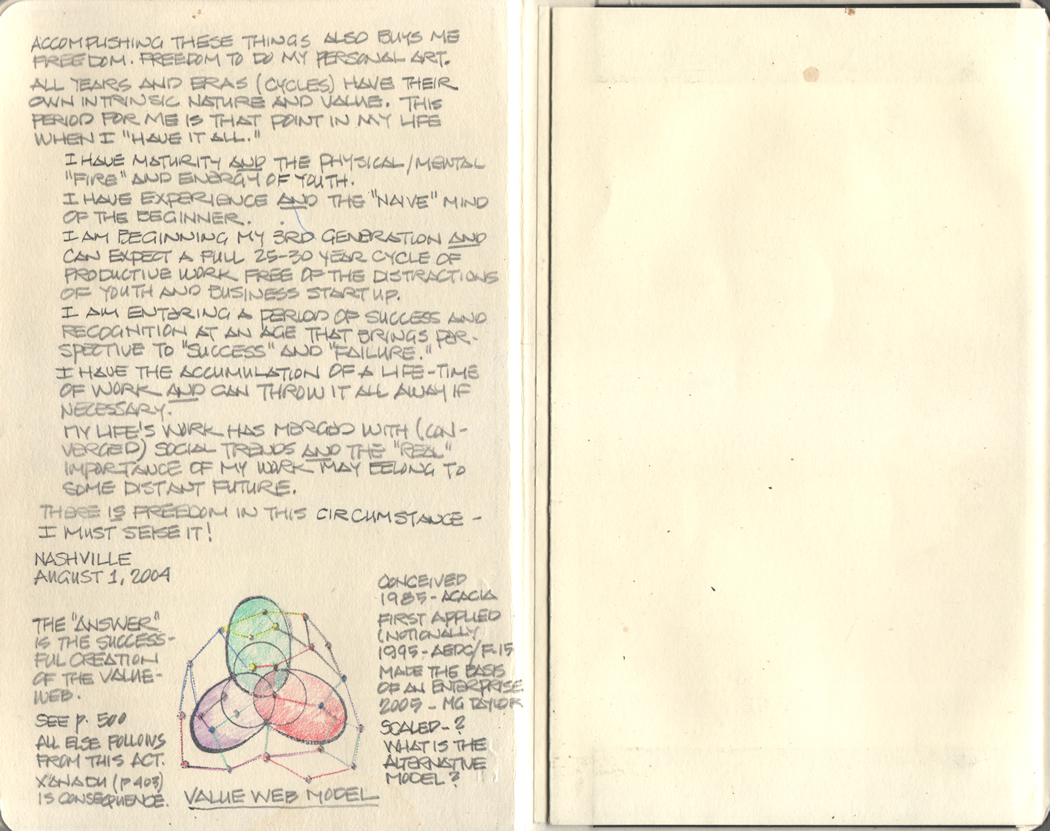 ACCOMPLISHING THESE THINGS ALSO BUYS ME
FREEDOM. FREEDOM TO DO MY PERSONAL ART.
ALL YEARS AND ERAS (CYCLES) HAVE THEIR
OWN INTRINSIC NATURE AND VALUE. THIS
PERIOD FOR ME IS THAT POINT IN MY LIFE
WHEN I "HAVE IT ALL."
I HAVE MATURITY AND THE PHYSICAL/MENTAL
"FIRE" AND ENERGY OF YOUTH.
I HAVE EXPERIENCE AND THE "NAIVE" MIND
OF THE BEGINNER.
I AM BEGINNING MY 3RD GENERATION AND
CAN EXPECT A FULL 25-30 YEAR CYCLE OF
PRODUCTIVE WORK FREE OF THE DISTRACTIONS
OF YOUTH AND BUSINESS START UP.
I AM ENTERING A PERIOD OF SUCCESS AND
RECOGNITION AT AN AGE THAT BRINGS PER-
SPECTIVE TO "SUCCESS" AND "FAILURE."
I HAVE THE ACCUMULATION OF A LIFE-TIME
OF WORK AND CAN THROW IT ALL AWAY IF
NECESSARY.
MY LIFE'S WORK HAS MERGED WITH (CON-
VERGED) SOCIAL TRENDS AND THE "REAL"
IMPORTANCE OF MY WORK MAY BELONG TO
SOME DISTANT FUTURE.
THERE IS FREEDOM IN THIS CIRCUMSTANCE -
I MUST SEISE IT!
NASHVILLE
AUGUST 1, 2004
THE "ANSWER"
IS THE SUCCESS-
FUL CREATION
OF THE VALUE-
WEB.
SEE p. 500
ALL ELSE FOLLOWS
FROM THIS ACT.
XANADU (P 403)
IS CONSEQUENCE.
VALUE WEB MODEL
CONCEIVED
1985 - ACACIA
FIRST APPLIED
(NOTIONALLY
1995 - AEDC/F.15
MADE THE BASIS
OF AN ENTERPRISE
2005 - MG TAYLOR
SCALED - ?
WHAT IS THE
ALTERNATIVE
MODEL?